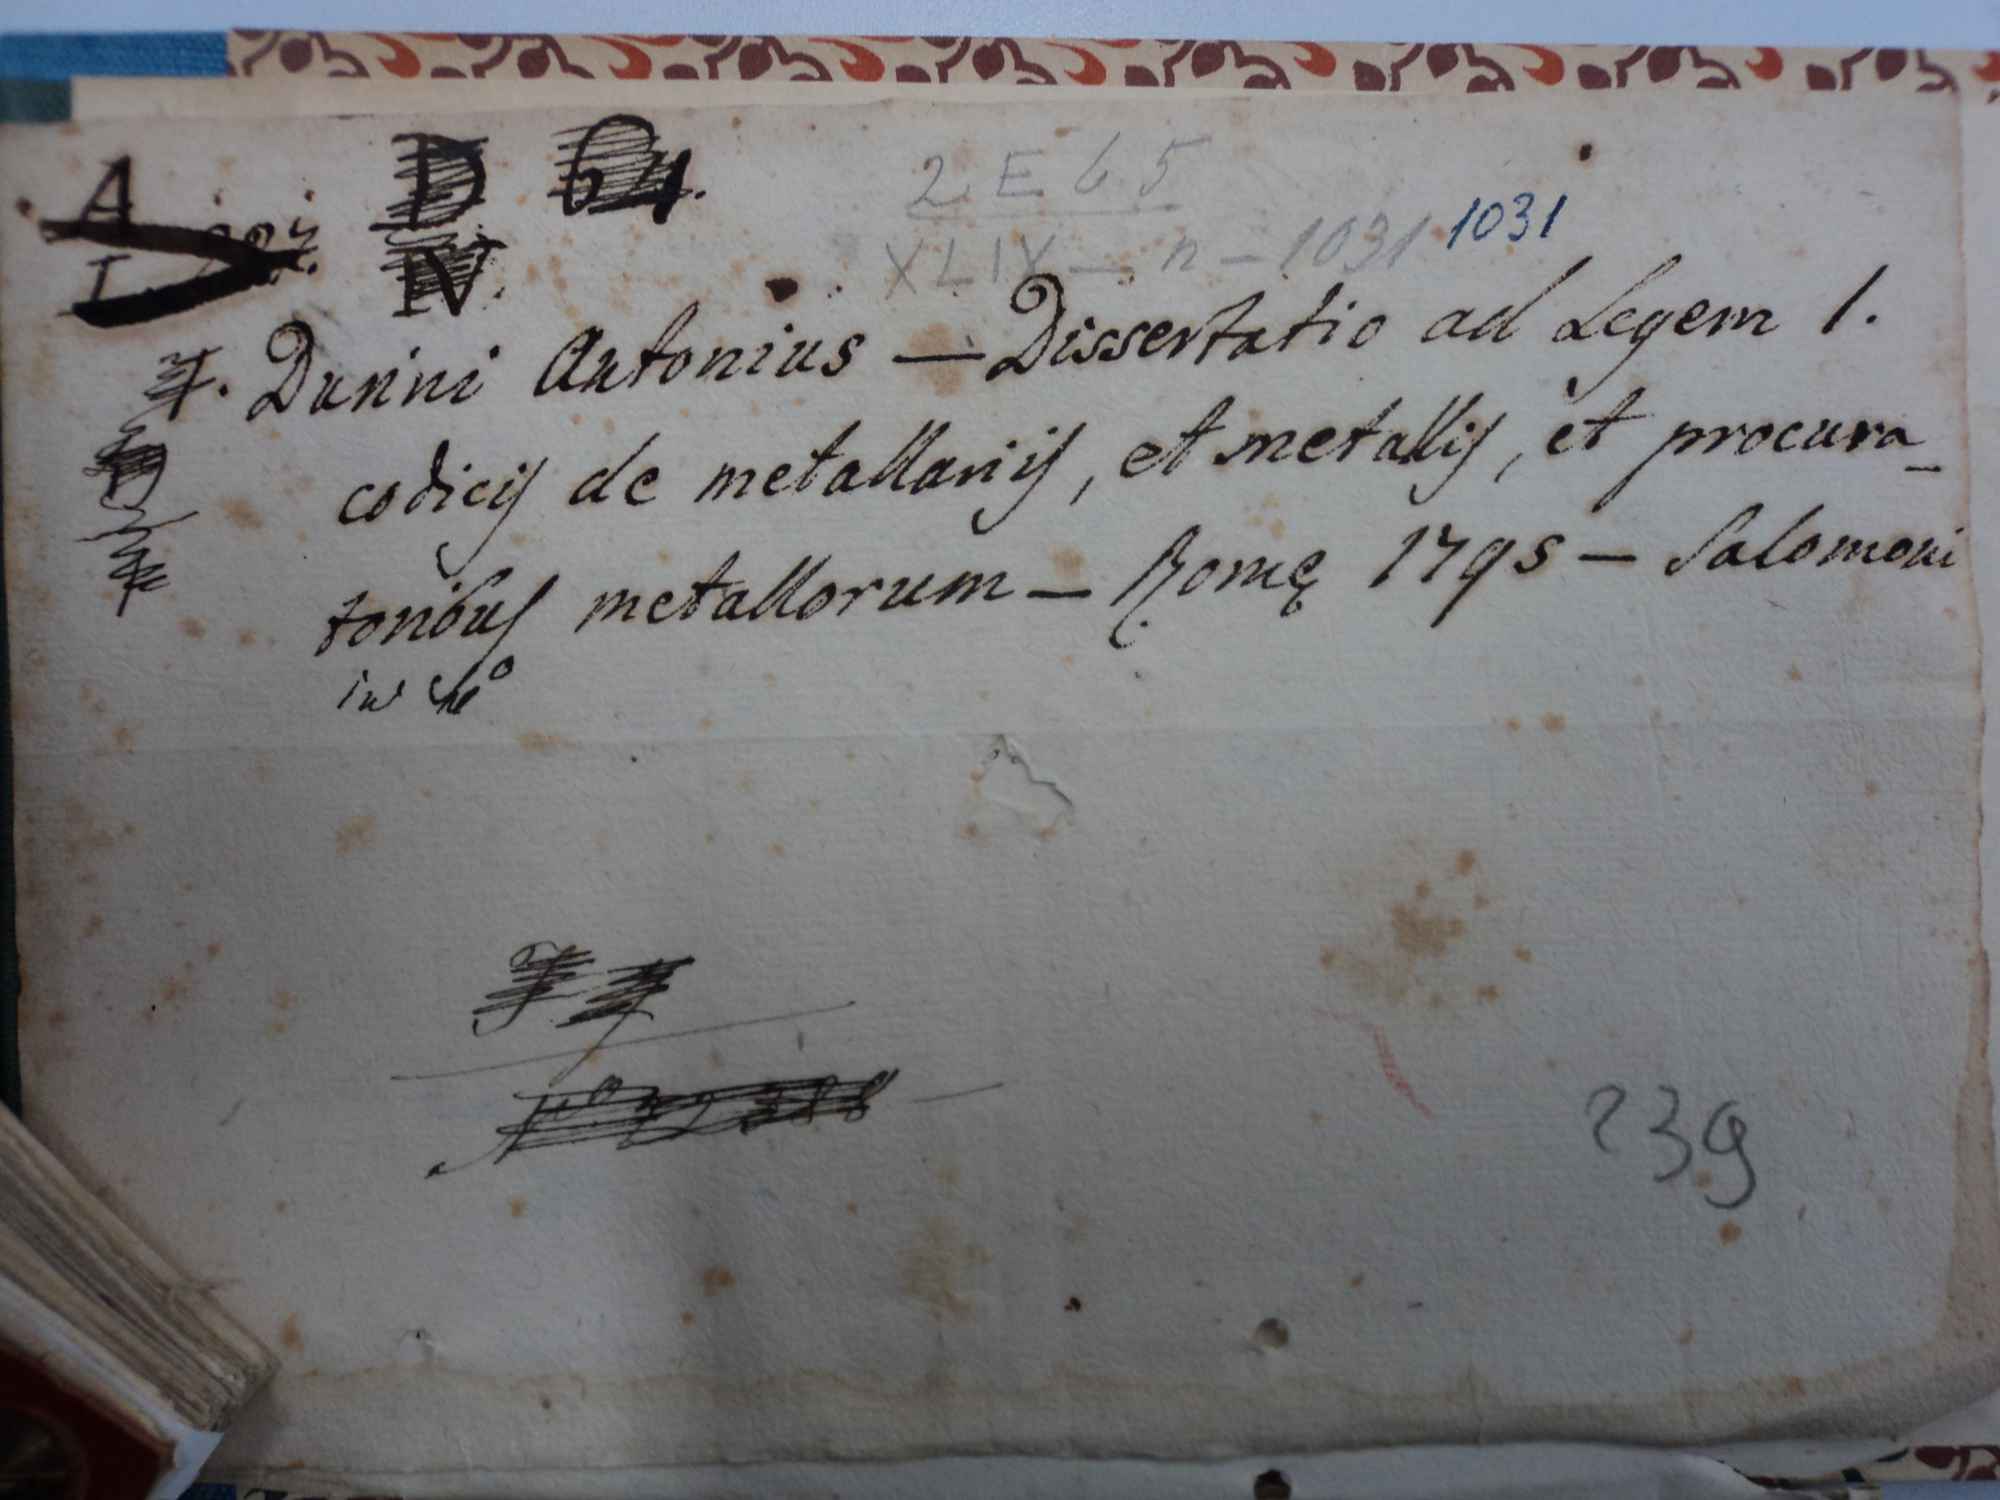 D 64.
IV
2 E 65
XLIX – n – 1031 1031
Durini Antonius — Dissertatio ad Legem 1.
codicis de metallariis, et metallis, et procura_
toribus metallorum – Romę 1795 – Salomoni
in
239